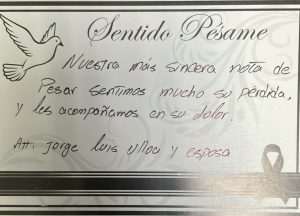 Sentido Pésame
Nuestra más sincera nota de
Pesar sentimos mucho su pérdida,
y les acompañamos en su dolor.
Att. Jorge luis ulloa y esposa